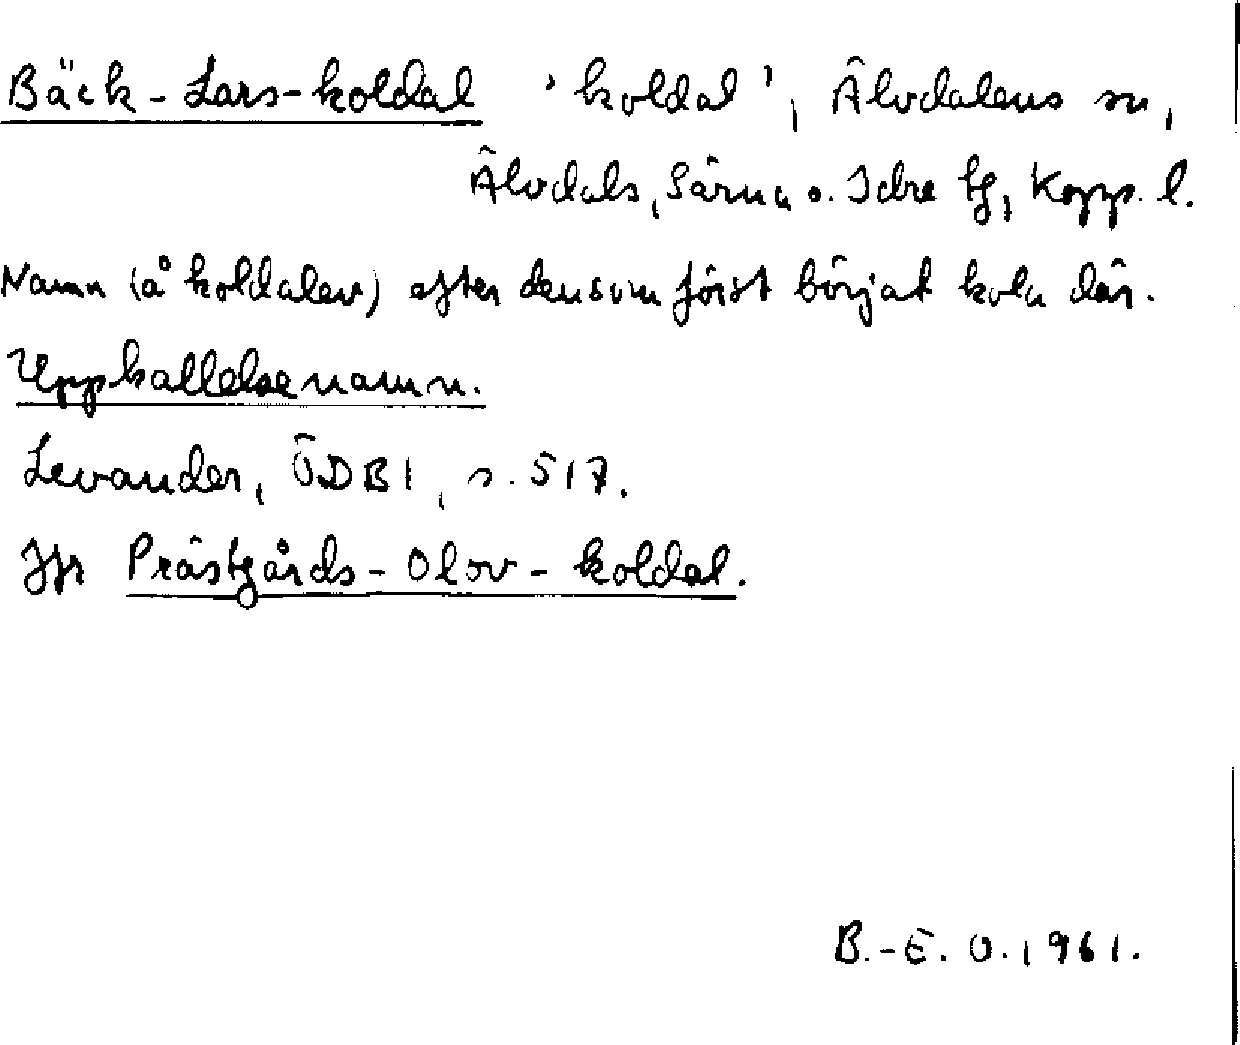 Bäck-Lars-koldal 'koldal', Älvdalens sn,
Älvdals, Särna o. Idre tg, Kopp. l.
Namn (å koldalen) efter den som först börjat kola där.
Uppkallelsenamn.
Levander, ÖDB I, s. 517.
Jfr Prästgårds-Olov-koldal.
B.-E. O. 1961.